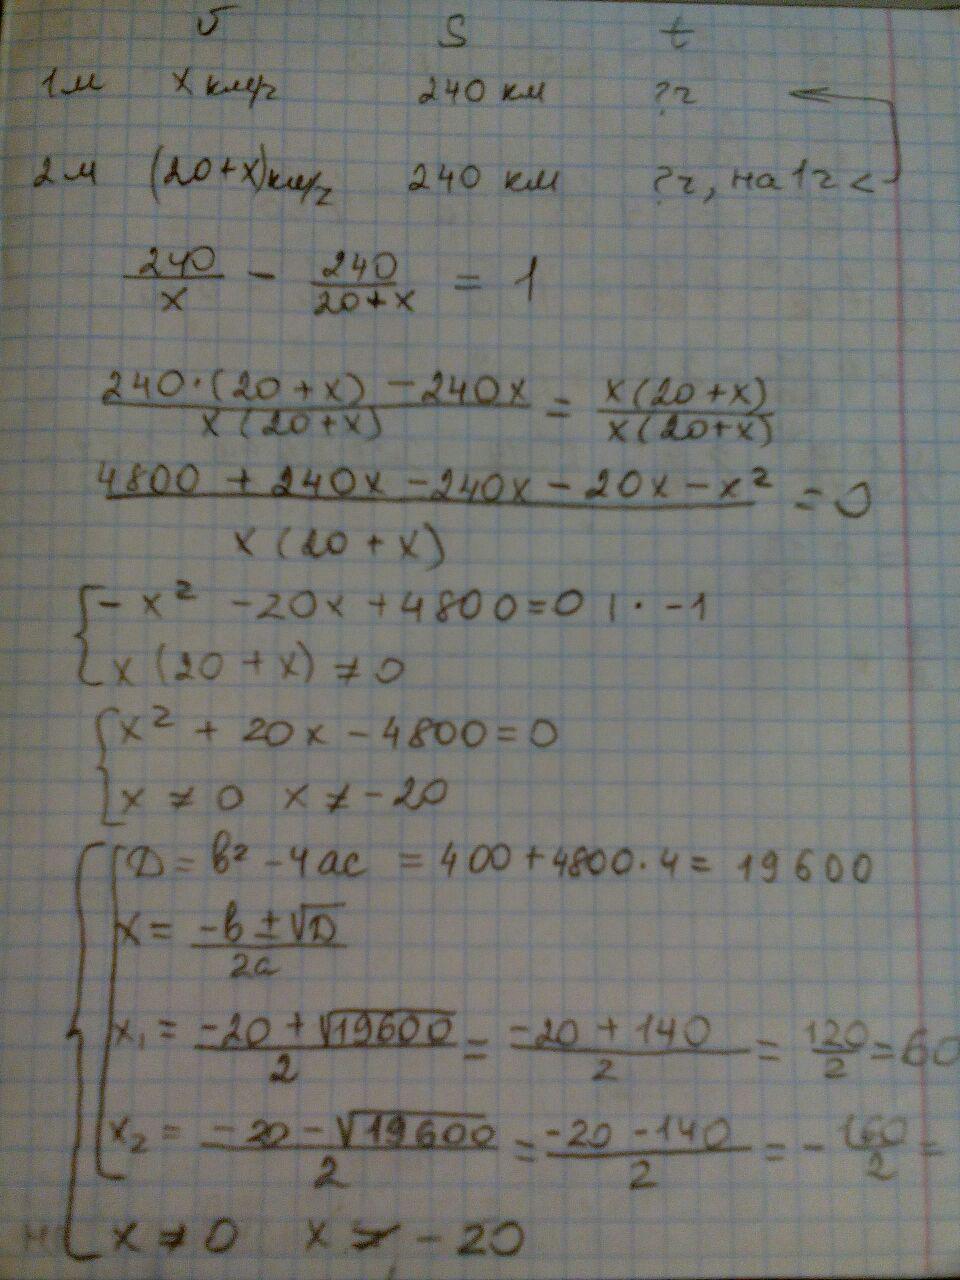 v S t
1м x км/ч 240 км ?ч
2м (20+x)км/ч 240 км ?ч, на 1ч <
240/x - 240/(20+x) = 1
(240·(20+x) - 240x)/(x(20+x)) = x(20+x)/(x(20+x))
(4800 + 240x - 240x - 20x - x²)/(x(20+x)) = 0
{ -x² - 20x + 4800 = 0 | · -1
x(20+x) ≠ 0
{ x² + 20x - 4800 = 0
x ≠ 0 x ≠ -20
{ [ D = b² - 4ac = 400 + 4800·4 = 19600
x = (-b ± √D)/(2a)
x₁ = (-20 + √19600)/2 = (-20 + 140)/2 = 120/2 = 60
x₂ = (-20 - √19600)/2 = (-20 - 140)/2 = -160/2 =
x ≠ 0 x ≠ -20